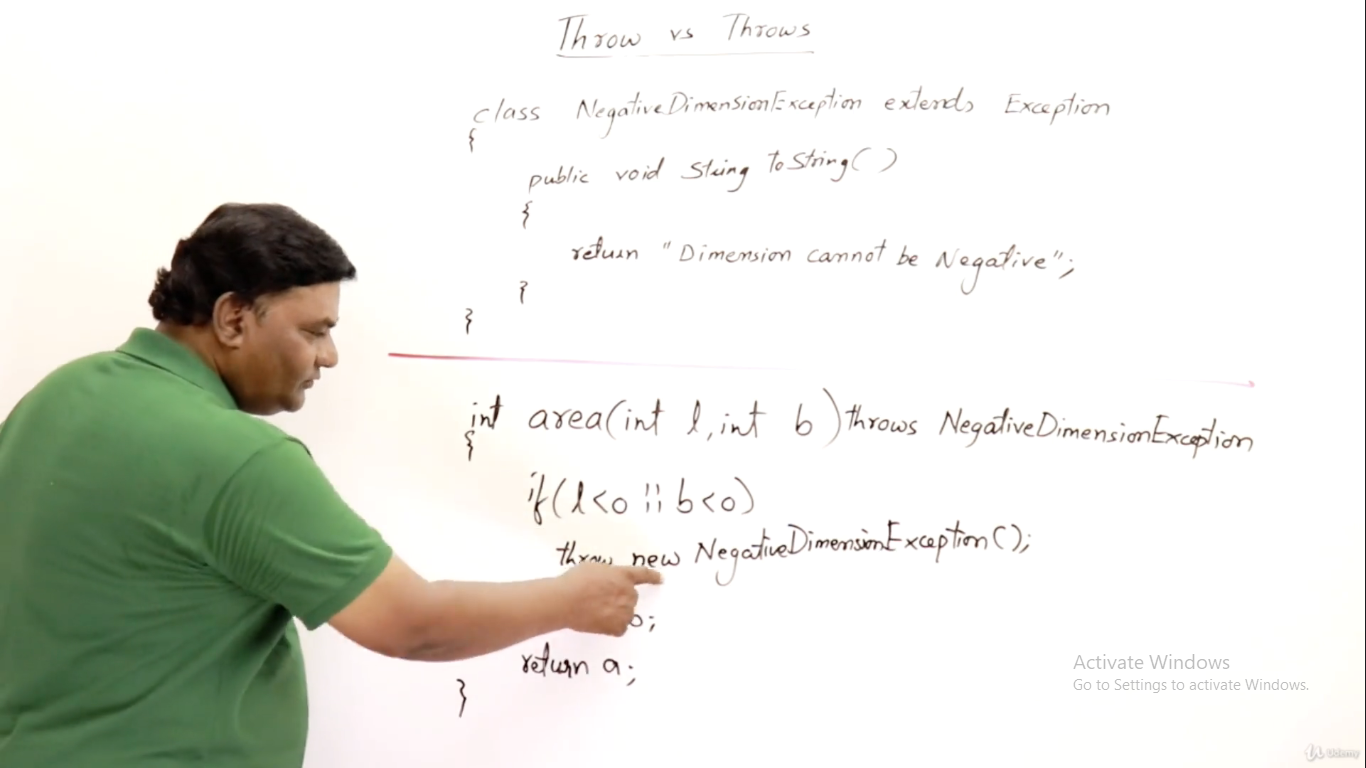 Throw vs Throws
class NegativeDimensionException extends Exception
{
public void String toString( )
{
return "Dimension cannot be Negative";
}
}
int area(int l, int b) throws NegativeDimensionException
{
if(l<0 || b<0)
throw new NegativeDimensionException();
b;
return a;
}
Activate Windows
Go to Settings to activate Windows.
Udemy